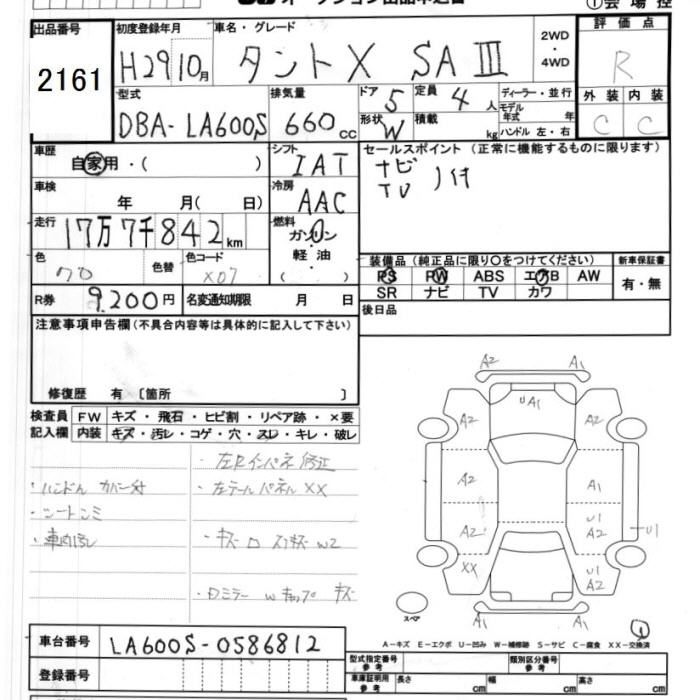 ①会場控
出品番号
2161
初度登録年月
H29 10月
車名・グレード
タントX SAⅢ
2WD
・
4WD
評価点
R
外装 内装
C C
型式
DBA-LA600S
排気量
660cc
ドア
5
定員
4人
形状
W
積載
kg
ディーラー・並行
モデル年式 年
ハンドル 左・右
車歴
自家用・( )
シフト
IAT
車検
年 月( 日)
冷房
AAC
走行
17万7千842km
燃料
ガソリン
軽油
( )
色
クロ
色替
色コード
X07
R券
9,200円
名変通知期限 月 日
セールスポイント (正常に機能するものに限ります)
ナビ
TV 付
装備品 (純正品に限り○をつけてください)
PS PW ABS エアB AW
SR ナビ TV カワ
新車保証書
有・無
後日品
注意事項申告欄 (不具合内容等は具体的に記入して下さい)
修復歴 有 〔箇所 〕
検査員記入欄
FW キズ・飛石・ヒビ割・リペア跡・×要
内装 キズ・汚レ・コゲ・穴・スレ・キレ・破レ
・ハンドル カバー付
・シートシミ
・左Rインパネ修正
・左テールパネルXX
・Dミラー W キャップ キズ
A2 A1
U A1
A2 A2
A2 A1
A2 U1 A2
U1
XX U1 A2
A1 A1
スペア
A-キズ E-エクボ U-凹み W-補修跡 S-サビ C-腐食 XX-交換済
車台番号
LA600S-0586812
登録番号
型式指定番号 参考
類別区分番号 参考
車庫証明用 参考 長さ cm 幅 cm 高さ cm